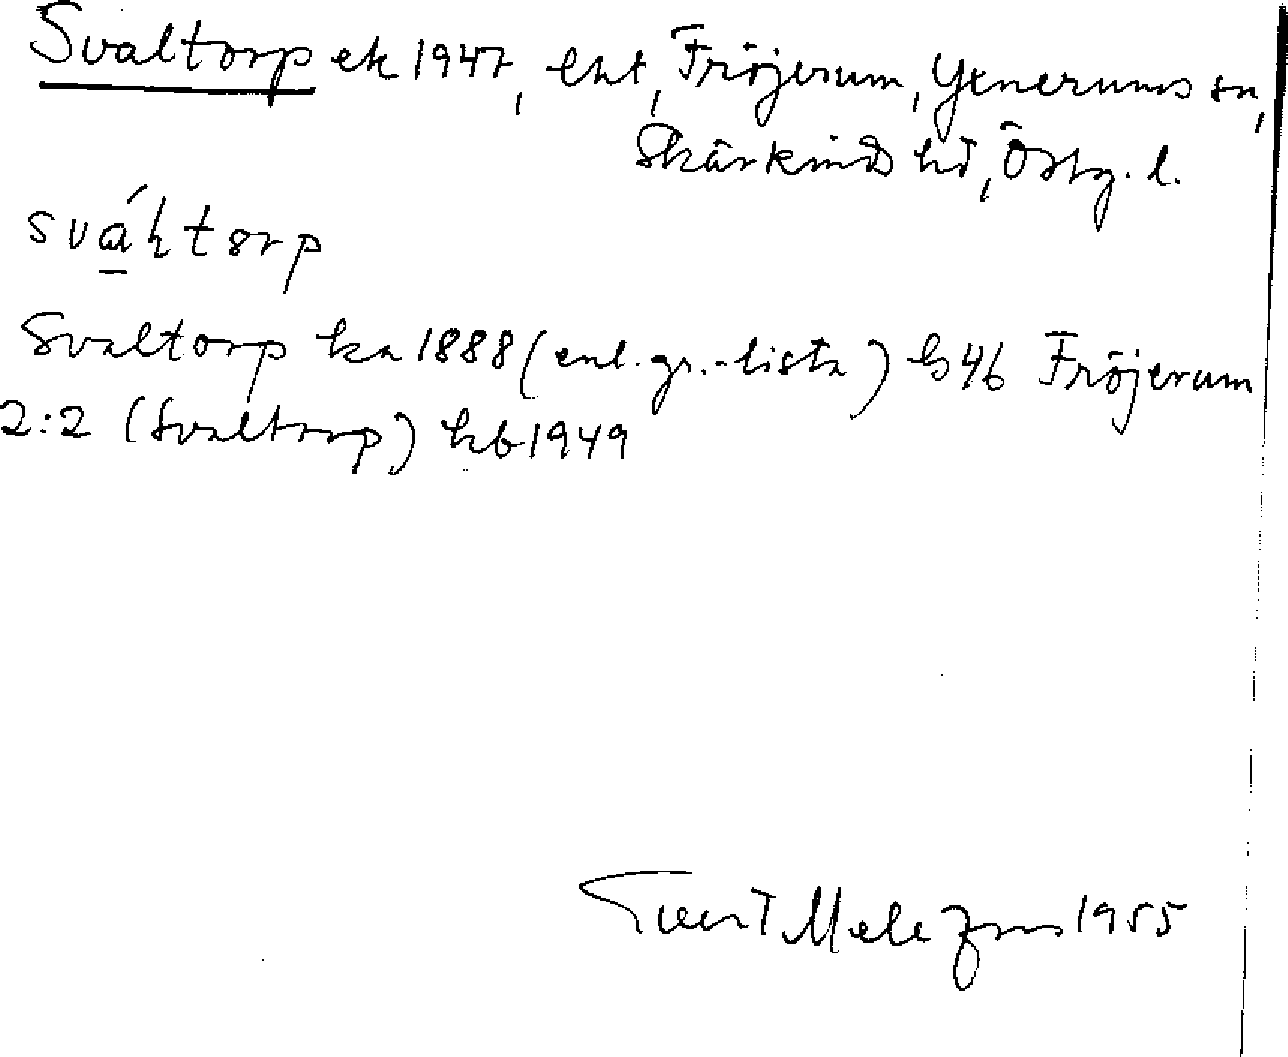 Svaltorp ek 1947, lht, Fröjerum, Yxnerums sn,
Skärkinds hd, Östg. l.
sváltorp
Svaltorp ka 1888 (enl. gr.-lista) b 46 Fröjerum
2:2 (Svaltorp) kb 1949
1955